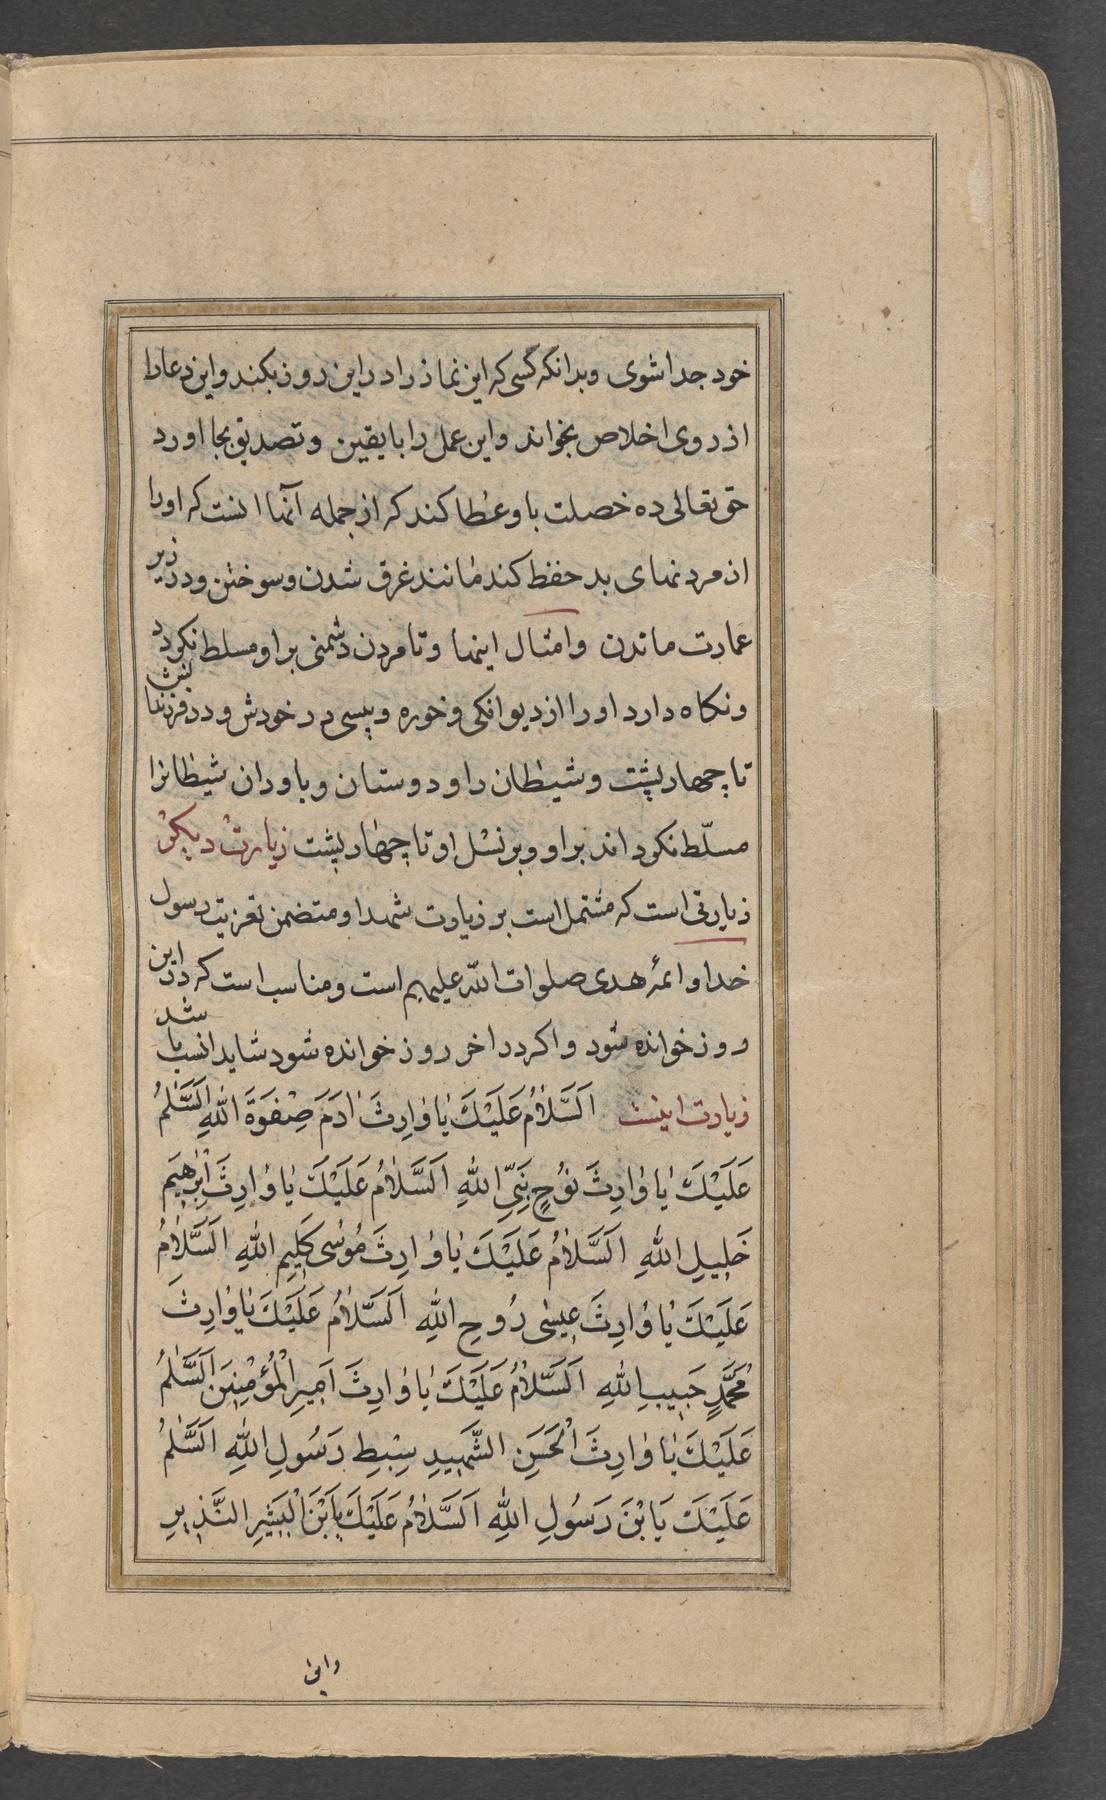 خود جدا شوی وبدانکه کسی که این نماز را در این روز بکند و این دعا را
از روی اخلاص بخواند و این عمل را با یقین و تصدیق بجا اورد
حق تعالی ده خصلت باو عطا کند که از جمله آنها انست که او را
از مردنهای بد حفظ کند مانند غرق شدن و سوختن و در زیر
عمارت ماندن و امثال اینها و تا مردن دشمنی بر او مسلط نکردد
و نکاه دارد او را از دیوانکی و خوره و پیسی در خودش و در فرزندانش
تا چهار پشت و شیطان را و دوستان و یاوران شیطانرا
مسلّط نکرداند بر او و بر نسل او تا چهار پشت زیارت دیکر
زیارتی است که مشتمل است بر زیارت شهدا و متضمن تعزیت رسول
خدا و ائمۀ هدی صلوات اللّه علیهم است و مناسب است که در این
روز خوانده شود و اکر در اخر روز خوانده شود شاید انسب باشد
زیارت اینست اَلسَّلامُ عَلَیْكَ یا وارِثَ ادَمَ صِفْوَةِ اللهِ اَلسَّلامُ
عَلَیْكَ یا وارِثَ نوُحٍ نَبِیِّ اللهِ اَلسَّلامُ عَلَیْكَ یا وارِثَ اِبْرهیمَ
خَلیلِ اللهِ اَلسَّلامُ عَلَیْكَ یا وارِثَ مُوسی کَلیمِ اللهِ اَلسَّلامُ
عَلَیْكَ یا وارِثَ عیسی رُوحِ اللهِ اَلسَّلامُ عَلَیْكَ یا وارِثَ
مُحَمَّدٍ حَبیبِ اللهِ اَلسَّلامُ عَلَیْكَ یا وارِثَ اَمیرِ الْمُؤْمِنینَ اَلسَّلامُ
عَلَیْكَ یا وارِثَ الْحَسَنِ الشَّهیدِ سِبْطِ رَسُولِ اللهِ اَلسَّلامُ
عَلَیْكَ یَابْنَ رَسُولِ اللهِ اَلسَّلامُ عَلَیْكَ یَابْنَ الْبَشیرِ النَّذیرِ
وابن